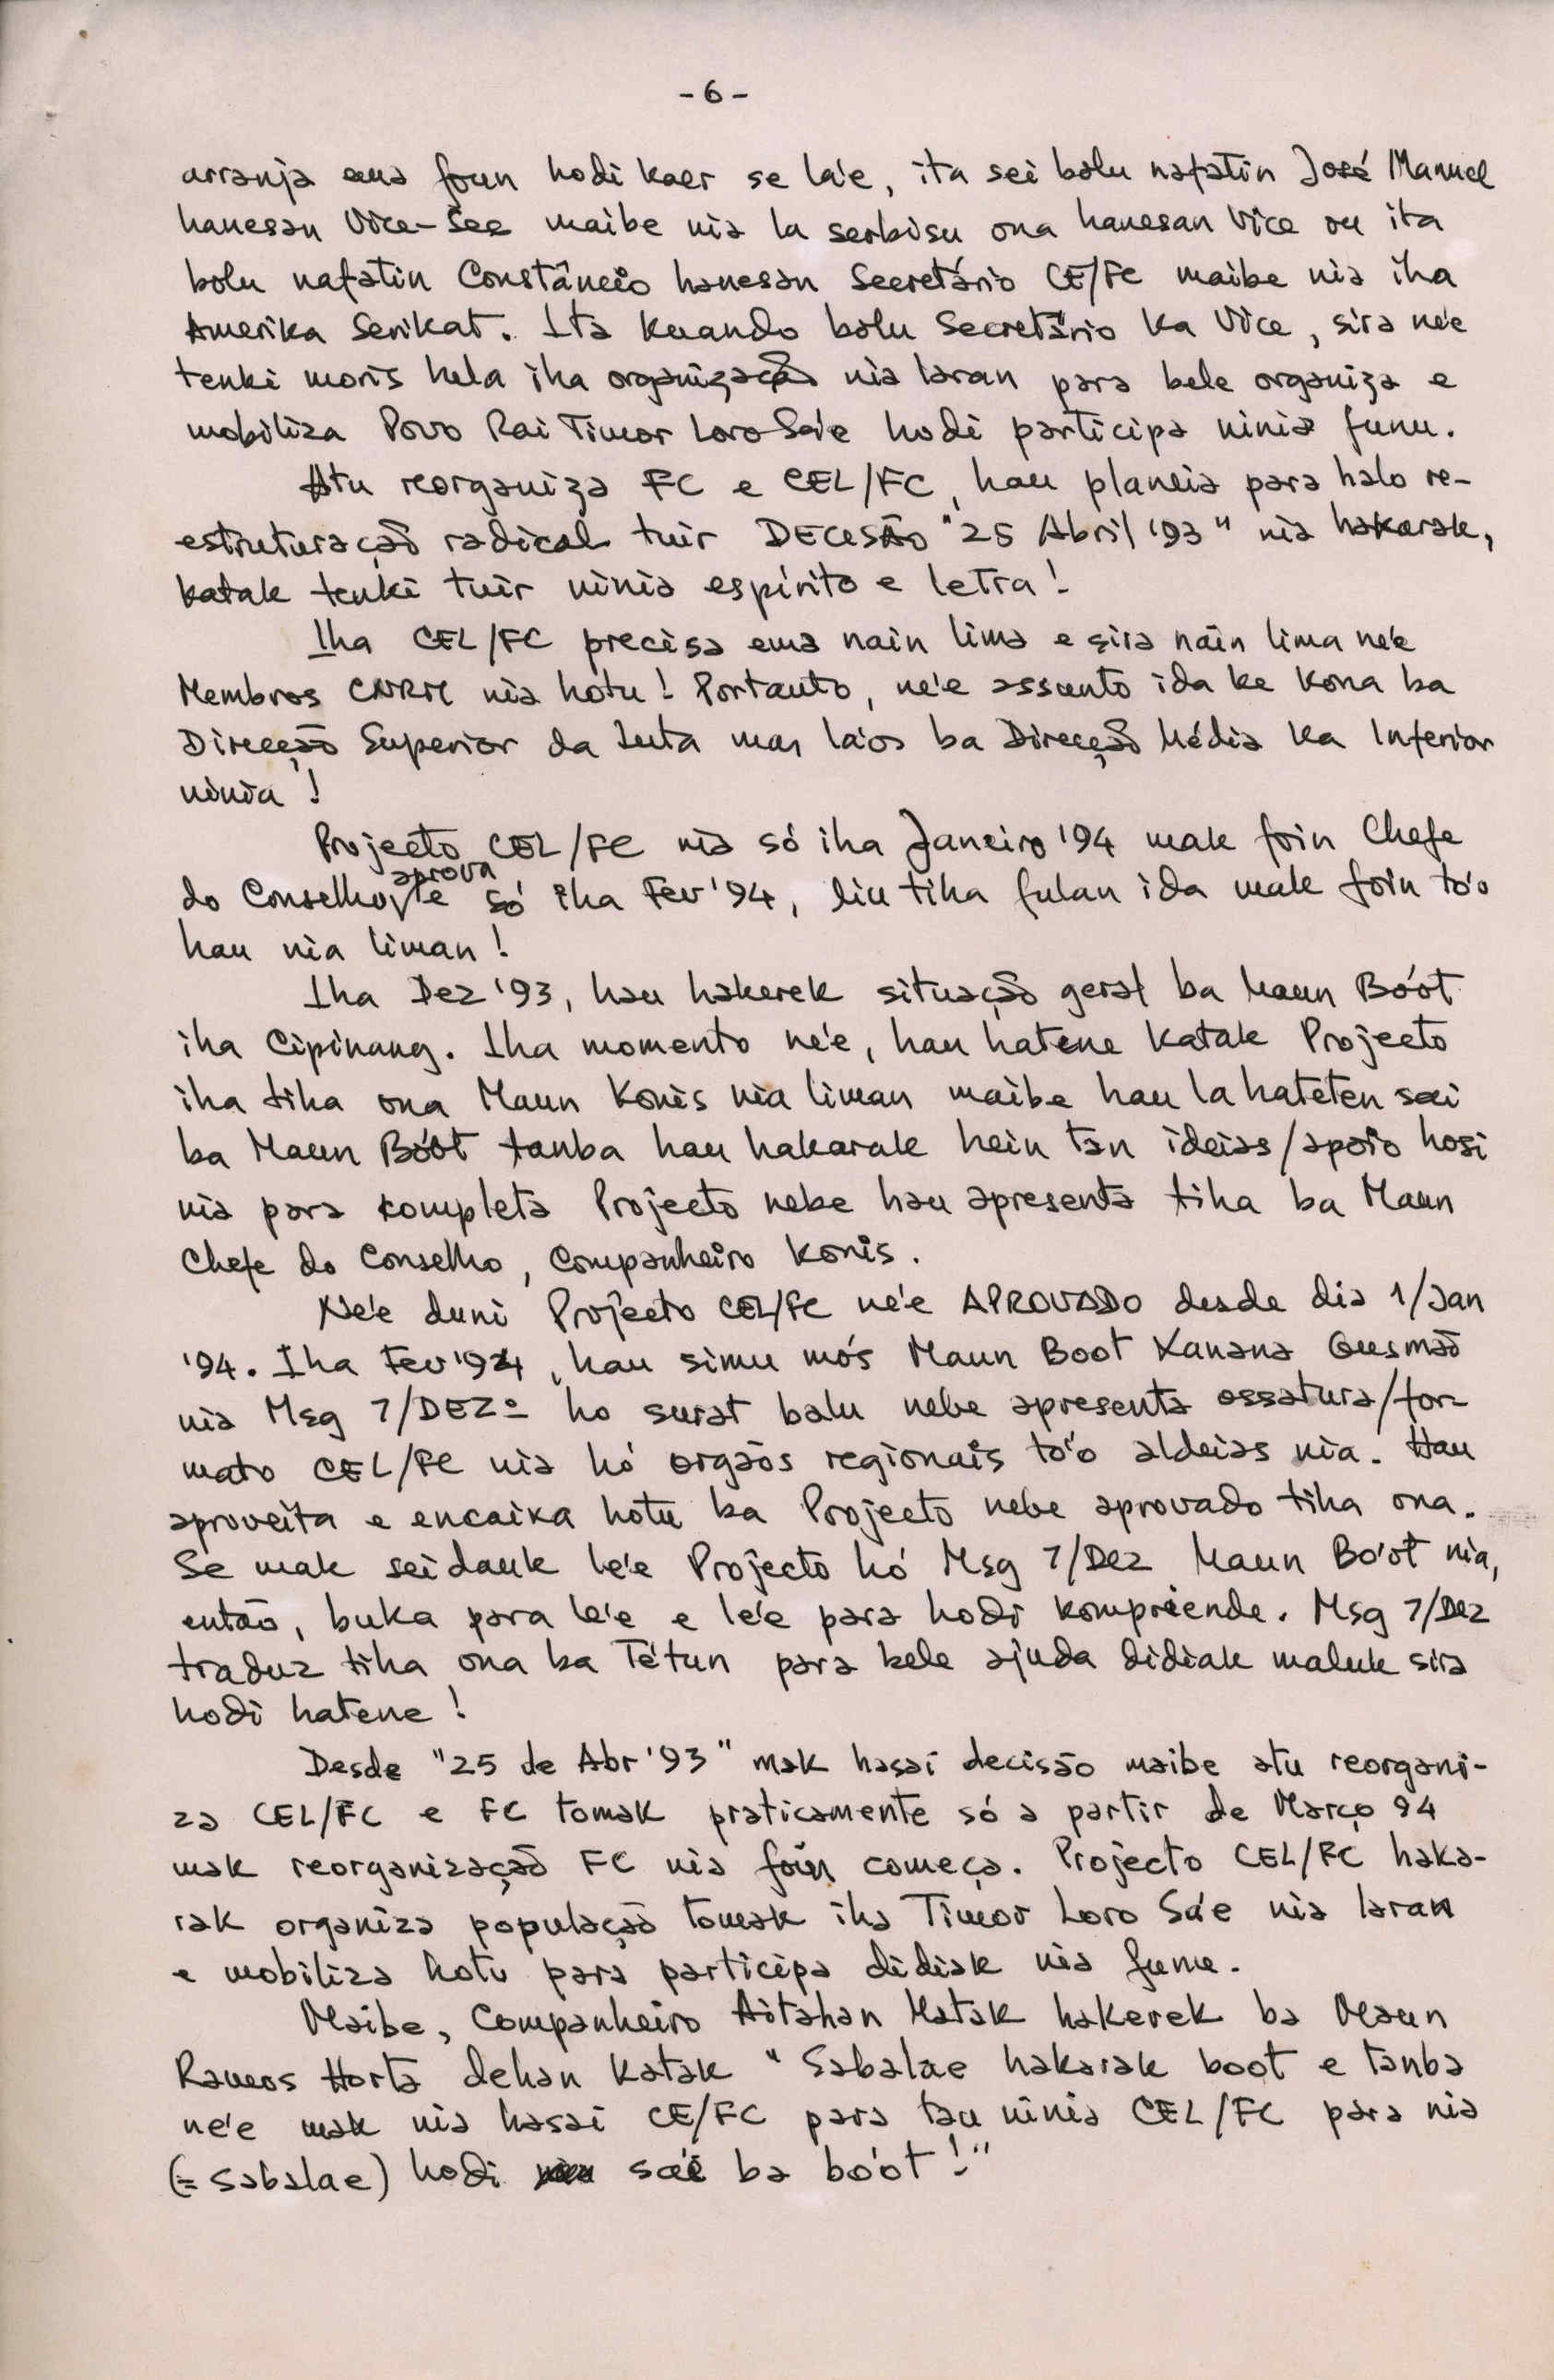 - 6 -
arranja ema foun hodi kaer se la'e, ita sei bolu nafatin José Manuel
hanesan Vice-Sec maibe nia la serbisu ona hanesan Vice ou ita
bolu nafatin Constâncio hanesan Secretário CE/FC maibe nia iha
Amerika Serikat. Ita kuando bolu Secretário ka Vice, sira ne'e
tenki moris hela iha organização nia laran para bele organiza e
mobiliza Povo Rai Timor Loro Sa'e hodi participa ninia funu.
Atu reorganiza FC e CEL/FC, hau planeia para halo re-
estruturação radical tuir DECISÃO "25 Abril '93" nia hakarak,
katak tenki tuir ninia espírito e letra!
Iha CEL/FC precisa ema nain lima e sira nain lima ne'e
Membros CNRM nia hotu! Portanto, ne'e assunto ida ke kona ba
Direcção Superior da Luta mas la'os ba Direcção Média ka Inferior
ninia!
Projecto CEL/FC nia só iha Janeiro '94 mak foin Chefe
do Conselho aprova e só iha Fev '94, liu tiha fulan ida mak foin to'o
hau nia liman!
Iha Dez '93, hau hakerek situação geral ba Maun Bóot
iha Cipinang. Iha momento ne'e, hau hatene katak Projecto
iha tiha ona Maun Konis nia liman maibe hau la hateten sai
ba Maun Bóot tanba hau hakarak hein tan ideias/apoio hosi
nia para kompleta Projecto nebe hau apresenta tiha ba Maun
Chefe do Conselho, Companheiro Konis.
Ne'e duni Projecto CEL/FC ne'e APROVADO desde dia 1/Jan
'94. Iha Fev '94, hau simu mós Maun Boot Xanana Gusmão
nia Msg 7/DEZº ho surat balu nebe apresenta ossatura/for-
mato CEL/FC nia hó orgãos regionais to'o aldeias nia. Hau
aproveita e encaixa hotu ba Projecto nebe aprovado tiha ona.
Se mak seidauk le'e Projecto hó Msg 7/Dez Maun Bo'ot nia,
então, buka para le'e e le'e para hodi kompriende. Msg 7/Dez
traduz tiha ona ba Tétun para bele ajuda didiak maluk sira
hodi hatene!
Desde "25 de Abr '93" mak hasai decisão maibe atu reorgani-
za CEL/FC e FC tomak praticamente só a partir de Março 94
mak reorganização FC nia foin começa. Projecto CEL/FC haka-
rak organiza população tomak iha Timor Loro Sa'e nia laran
e mobiliza hotu para participa didiak nia funu.
Maibe, Companheiro Aitahan Matak hakerek ba Maun
Ramos Horta dehan katak "Sabalae hakarak boot e tanba
ne'e mak nia hasai CE/FC para tau ninia CEL/FC para nia
(= sabalae) hodi sa'e ba bo'ot!"